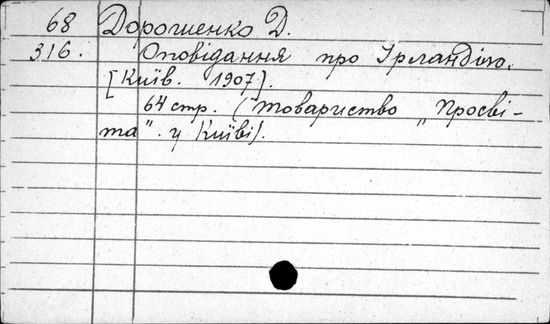 68 Дорошенко Д.
316. Оповідання про Ірландію.
[Київ. 1907].
64 стр. (Товариство „Просві-
та". у Київі).